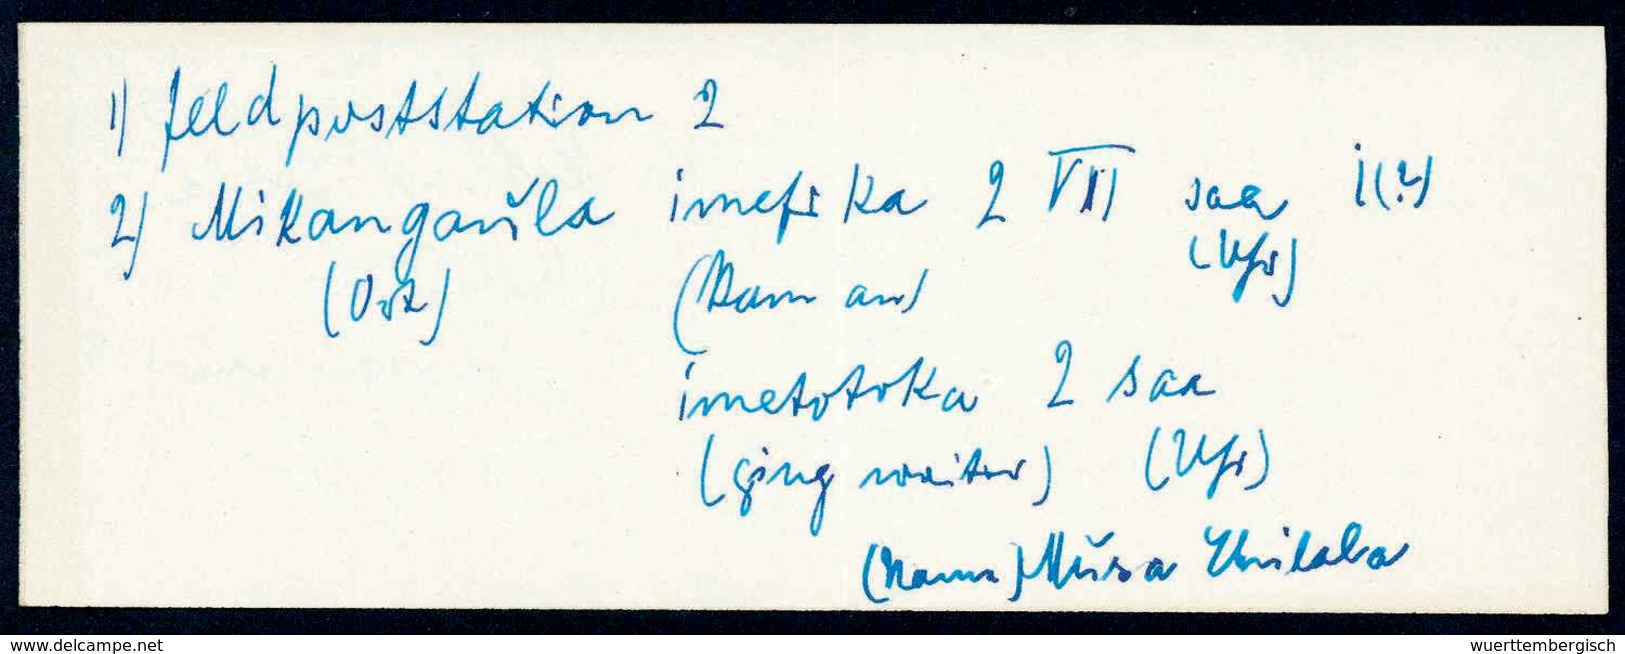 1) Feldpoststation 2
2) Mikangaŭla imefika 2 VII saa 1(?)
(Ort) (Kam an) (Uhr)
imetotoka 2 saa
(ging weiter) (Uhr)
(Name) Mŭsa
www.delcampe.net wuerttembergisch